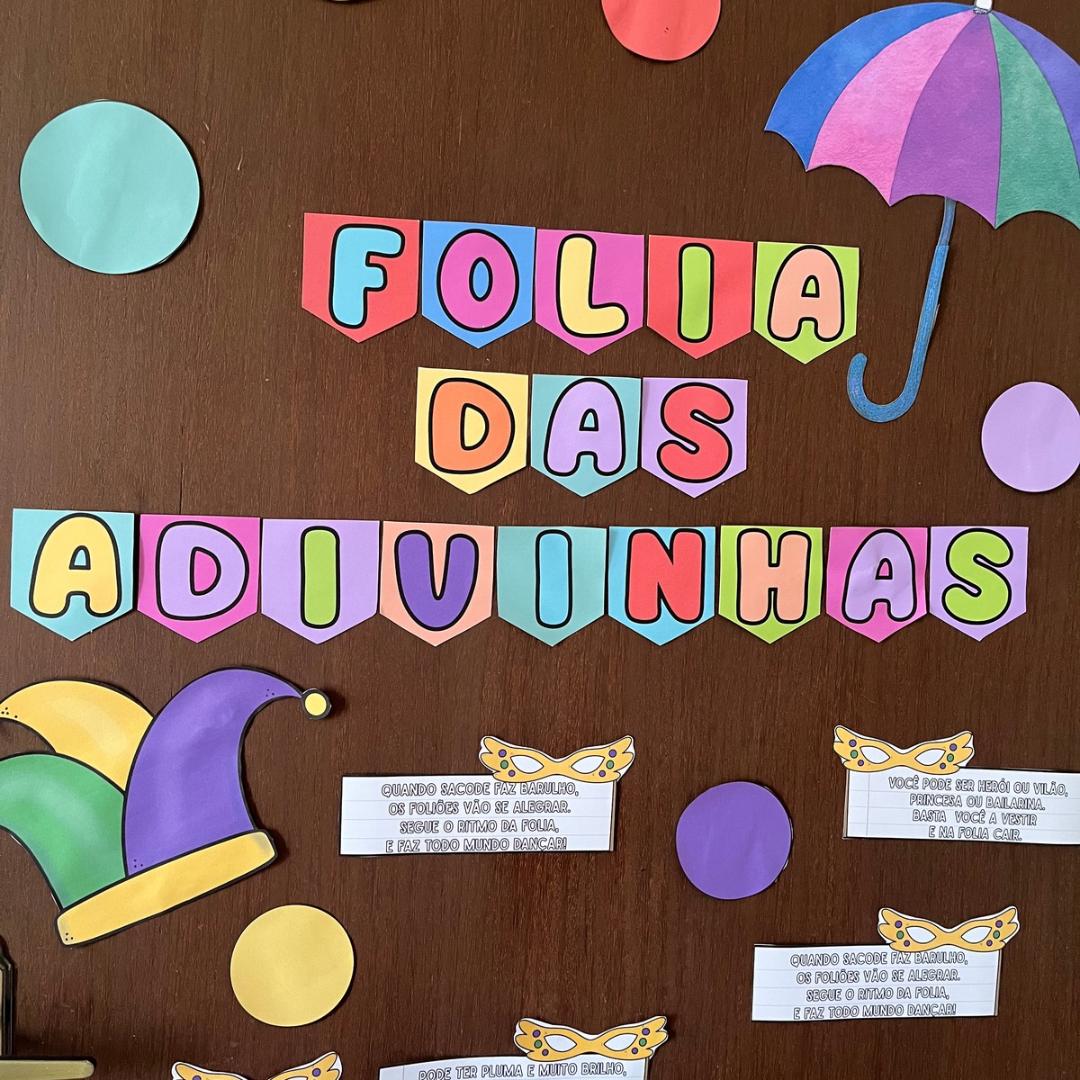 FOLIA
DAS
ADIVINHAS
QUANDO SACODE FAZ BARULHO,
OS FOLIÕES VÃO SE ALEGRAR.
SEGUE O RITMO DA FOLIA,
E FAZ TODO MUNDO DANÇAR!
VOCÊ PODE SER HERÓI OU VILÃO,
PRINCESA OU BAILARINA.
BASTA VOCÊ A VESTIR
E NA FOLIA CAIR.
QUANDO SACODE FAZ BARULHO,
OS FOLIÕES VÃO SE ALEGRAR.
SEGUE O RITMO DA FOLIA,
E FAZ TODO MUNDO DANÇAR!
PODE TER PLUMA E MUITO BRILHO,